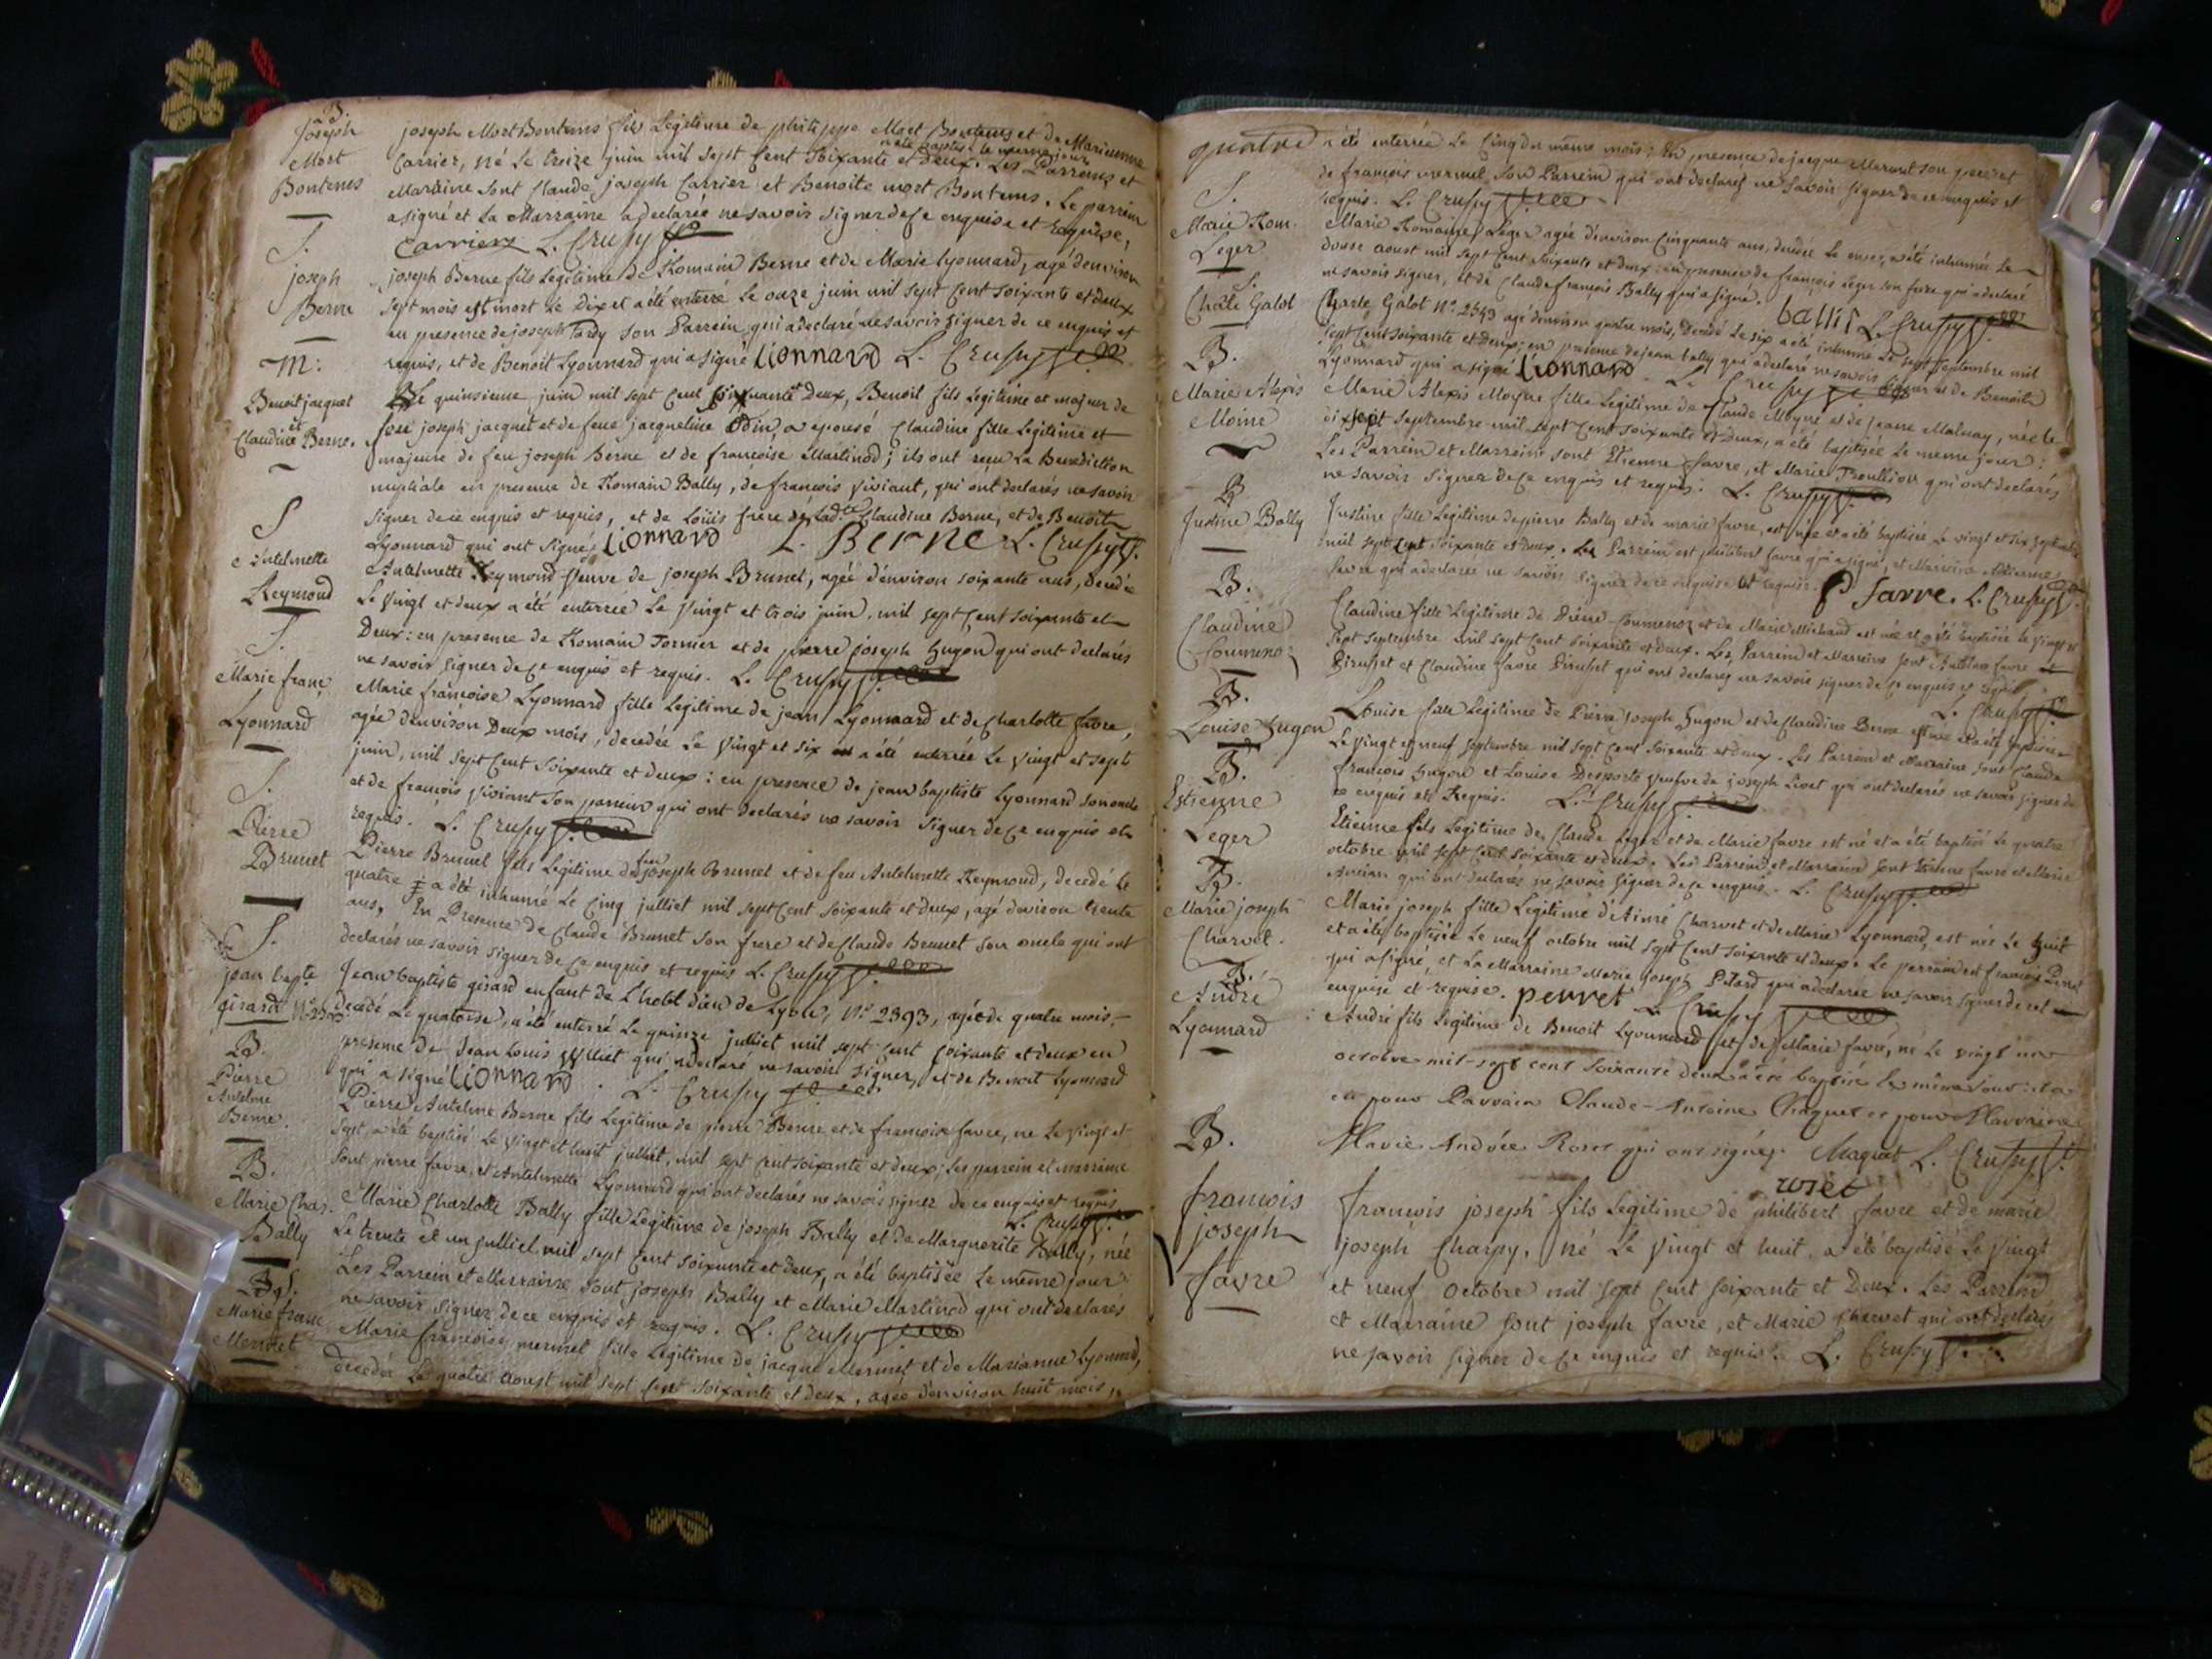 B.
Joseph
Mort
Bontems
joseph Mort Bontems fils Legitime de philippe Mort Bontems et de Marienne
Carrier, né Le treize juin mil sept Cent soixante et deux. Les Parreins et
a été baptisé le meme jour
Marraine sont Claude joseph Carrier et Benoite mort Bontems. Le parrein
a signé et La Marraine a declarée ne savoir signer de ce enquise et requise,
Carrier L. Crussy
S.
joseph
Berne
joseph Berne fils Legitime de Romain Berne et de Marie Lyonnard, agé d'environ
sept mois est mort Le Dix et a été enterré Le onze juin mil sept Cent soixante et deux
en presence de joseph Tardy son Parrein qui a declaré ne savoir signer de ce enquis et
requis, et de Benoit Lyonnard qui a signé Lionnard L. Crussy
M:
Benoit jacquet
et
Claudine Berne.
Le quinsieme juin mil sept Cent soixante et Deux, Benoit fils Légitime et majeur de
feu joseph jacquet et de feue jacqueline Odin, a epousé Claudine fille Legitime et
majeure de feu joseph Berne et de francoise Martinod; ils ont reçu La Benediction
nuptiale en presence de Romain Bally, de francois Viviant, qui ont declarés ne savoir
signer de ce enquis et requis, et de Loüis frere de lad.te Claudine Berne, et de Benoit
Lyonnard qui ont signés Lionnard L. Berne L. Crussy
S
Antelmette
Reymond
Antelmette Reymond Veuve de joseph Brunet, agée d'environ soixante ans, decedée
Le Vingt et deux a été enterrée Le Vingt et trois juin mil sept Cent soixante et
Deux: en presence de Romain Tornier et de pierre joseph hugon qui ont declarés
ne savoir signer de ce enquis et requis. L. Crussy
S.
Marie franç
Lyonnard
Marie françoise Lyonnard fille Legitime de jean Lyonnard et de Charlotte favre,
agée d'environ Deux mois, decedée Le Vingt et six a été enterrée Le Vingt et sept
juin, mil sept Cent soixante et deux: en presence de jean baptiste Lyonnard son oncle
et de francois Viviant son parrein qui ont declarés ne savoir signer de ce enquis et
requis. L. Crussy
S.
Pierre
Brunet
Pierre Brunet fils Legitime de feu joseph Brunet et de feu Antelmette Reymond, decedé Le
quatre a été inhumé Le Cinq julliet mil sept Cent soixante et deux, agé d'environ trente
ans, En Presence de Claude Brunet son frere et de Claude Brunet son oncle qui ont
declarés ne savoir signer de ce enquis et requis L. Crussy
S.
jean bapte
girard
Jean baptiste girard enfant de L'hotel dieu de Lyon, N° 2393, agé de quatre mois,
decedé Le quatorse, a été enterré Le quinze julliet mil sept Cent soixante et deux en
presence de Jean Louis qui a declaré ne savoir signer, et de Benoit Lyonnard
qui a signé Lionnard. L. Crussy
B.
Pierre
Antelme
Berne.
Pierre Antelme Berne fils Legitime de pierre Berne et de françoise favre, ne Le Vingt et
sept a été baptisé Le Vingt et huit julliet, mil sept Cent soixante et deux; Les parrein et marraine
sont pierre favre, et Antelmette Lyonnard qui ont declarés ne savoir signer de ce enquis et requis
L. Crussy
B.
Marie Char.
Bally
Marie Charlotte Bally fille Legitime de joseph Bally et de Marguerite Bally, née
Le trente et un julliet mil sept Cent soixante et deux, a été baptisée Le même jour
Les Parrein et Marraine sont joseph Bally et Marie Martinod qui ont declarés
ne savoir signer de ce enquis et requis. L. Crussy
S.
Marie franc
Mermet
Marie francoise mermet fille Legitime de jacque Mermet et de Marianne Lyonnard,
decedée Le quatre aoust mil sept Cent soixante et deux, agée d'environ huit mois,
quatre a été enterrée Le Cinq du même mois; En presence de jacque Mermet son pere et
de françois mermet son Parrein qui ont declarés ne savoir signer de ce enquis et
requis. L. Crussy
S.
Marie Rom.
Leger
Marie Romaine Leger agée d'environ Cinquante ans, decedée Le onze, a été inhumée Le
dousse aoust mil sept Cent soixante et deux: en presence de françois Leger son frere qui a declaré
ne savoir signer, et de Claude françois Bally qui a signé. balli L. Crussy
S.
Charle Galot
Charle Galot N° 2543 agé d'environ quatre mois, Decedé Le six a été inhumé Le sept Septembre mil
sept Cent soixante et deux: en presence de jean bally qui a declaré ne savoir signer et de Benoit
Lyonnard qui a signé Lionnard L. Crussy
B.
Marie Alexis
Moine
Marie Alexis Moyne fille Legitime de Claude Moyne et de jeane Malnay, née Le
dix sept Septembre mil sept Cent soixante et Deux, a été baptisée Le meme jour:
Les Parrein et Marraine sont Etienne favre, et Marie Troullion qui ont declarés
ne savoir signer de ce enquis et requis. L. Crussy
B
Justine Bally
Justine fille Legitime de pierre Bally et de marie favre, est née et a été baptisée Le vingt et six Septembre
mil sept Cent soixante et deux. Le Parrein est philibert favre qui a signé, et Marraine
favre qui a declarée ne savoir signer de ce enquise et requise. P favre. L. Crussy
B.
Claudine
Coumenoz
Claudine fille Legitime de Coumenoz et de Marie Michaud est née et a été baptisée Le Vingt et
sept Septembre mil sept Cent soixante et deux. Les Parrein et Marraine sont Antelme favre
Pirubet et Claudine favre Pirubet qui ont declarés ne savoir signer de ce enquis et requis
L. Crussy
B.
Louise hugon
Louise fille Legitime de Pierre joseph hugon et de Claudine Berne est née et a été baptisée
Le Vingt et neuf Septembre mil sept Cent soixante et deux. Les Parrein et Marraine sont Claude
françois hugon et Louise Desporte Veufve de joseph Livet qui ont declarés ne savoir signer de
ce enquis et Requis. L. Crussy
B.
Estienne
Leger
Etienne fils Legitime de Claude Leger et de Marie favre est né et a été baptisé Le quatre
octobre mil sept Cent soixante et deux. Les Parrein et Marraine sont Etienne favre et Marie
qui ont declarés ne savoir signer de ce enquis. L. Crussy
B.
Marie joseph
Charvet.
Marie joseph fille Legitime d'Aimé Charvet et de Marie Lyonnard, est née Le huit
et a été baptisée Le neuf octobre mil sept Cent soixante et deux. Le parrein est francois
qui a signé, et La Marraine Marie joseph qui a declarée ne savoir signer de cet
enquise et requise. perret L. Crussy
B.
André
Lyonnard
André fils Legitime de Benoit Lyonnard et de Marie favre, né Le vingt un
octobre mil-sept cent soixante deux a été baptisé le même jour: il a
eu pour Parrain Claude-Antoine et pour Marraine
Marie Andrée Roset qui ont signés. Maquet L. Crussy
roset
B.
francois
joseph
favre
francois joseph fils Legitime de philibert favre et de marie
joseph Charpy, né Le Vingt et huit, a été baptisé Le Vingt
et neuf Octobre mil sept Cent soixante et Deux. Les Parrein
et Marraine sont joseph favre, et Marie Chervet qui ont declarés
ne savoir signer de ce enquis et requis. L. Crussy